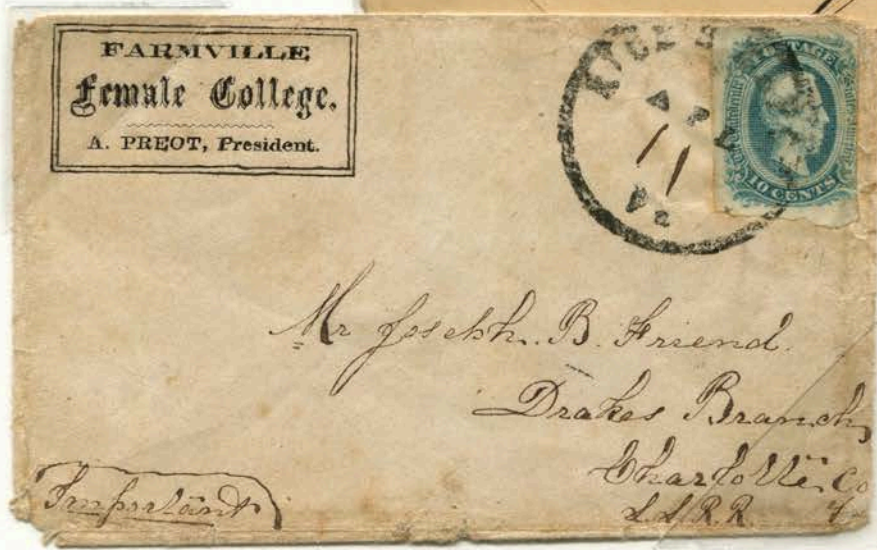 FARMVILLE
Female College.
A. PREOT, President.
RICE S
AP
11
Va
POSTAGE
10 CENTS
Mr Joseph. B. Friend.
Drakes Branch
Charlotte. Co
Important